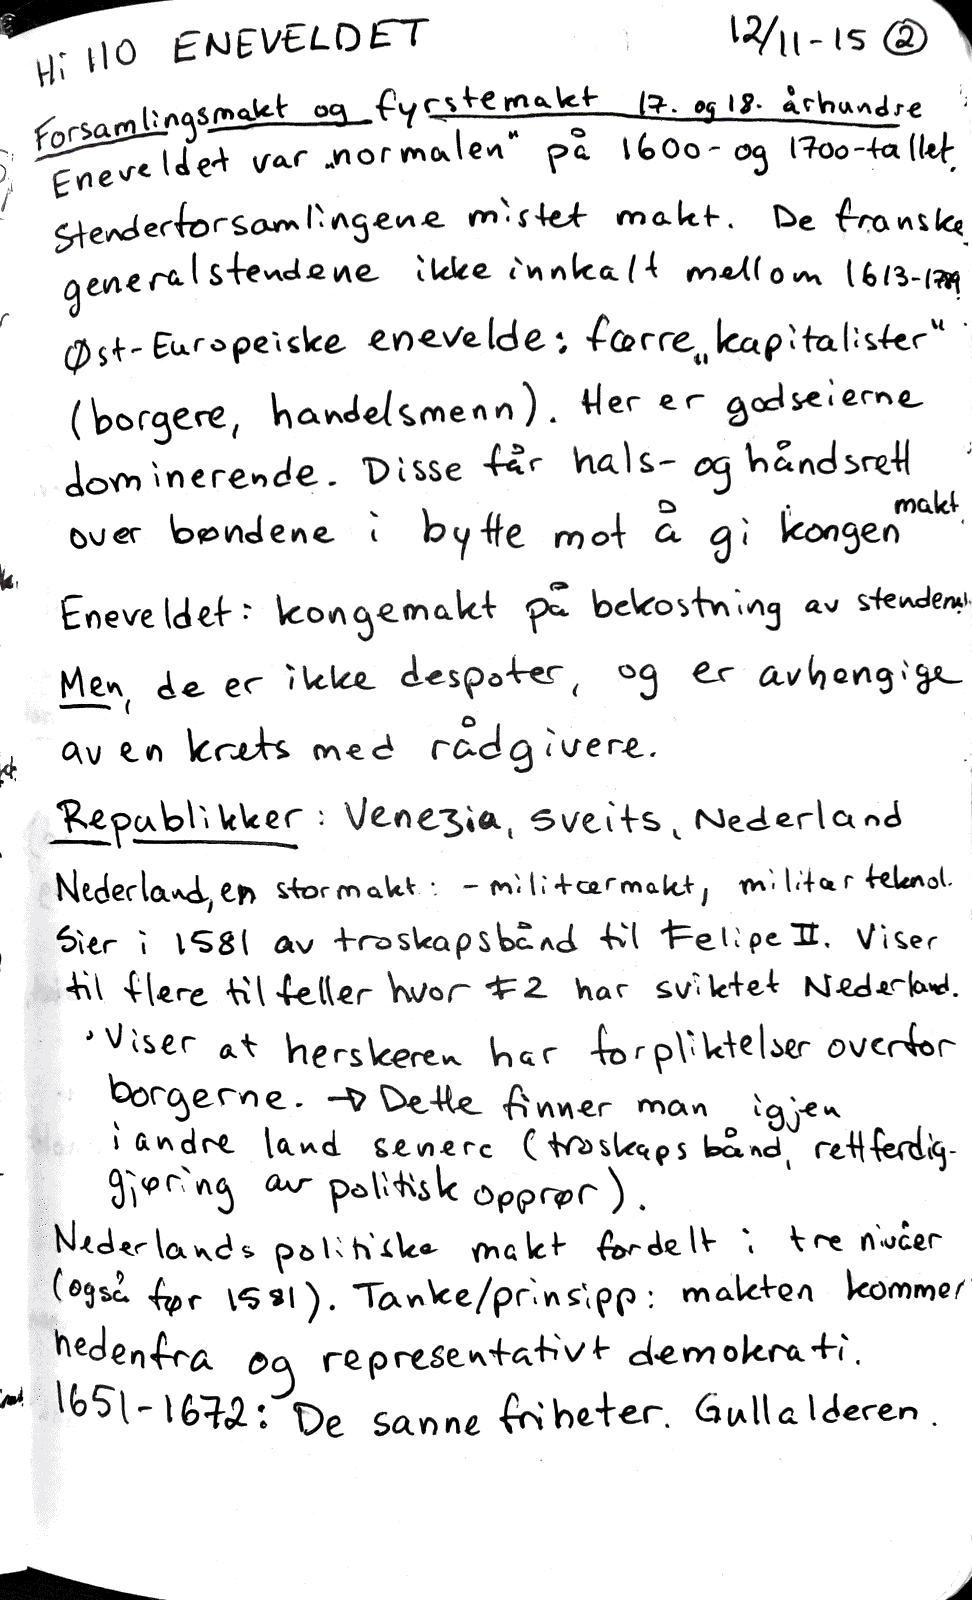 Hi 110 ENEVELDET 12/11-15 2
Forsamlingsmakt og fyrstemakt 17. og 18. århundre
Eneveldet var „normalen" på 1600- og 1700-tallet.
Stenderforsamlingene mistet makt. De franske
generalstendene ikke innkalt mellom 1613-1789
Øst-Europeiske enevelde: færre „kapitalister"
(borgere, handelsmenn). Her er godseierne
dominerende. Disse får hals- og håndsrett
over bøndene i bytte mot å gi kongen makt.
Eneveldet: kongemakt på bekostning av stendene.
Men, de er ikke despoter, og er avhengige
av en krets med rådgivere.
Republikker: Venezia, Sveits, Nederland
Nederland, en stormakt: - militærmakt, militær teknol.
Sier i 1581 av troskapsbånd til Felipe II. Viser
til flere tilfeller hvor F2 har sviktet Nederland.
• Viser at herskeren har forpliktelser overfor
borgerne. → Dette finner man igjen
i andre land senere (troskapsbånd, rettferdig-
gjøring av politisk opprør).
Nederlands politiske makt fordelt i tre nivåer
(også før 1581). Tanke/prinsipp: makten kommer
nedenfra og representativt demokrati.
1651-1672: De sanne friheter. Gullalderen.